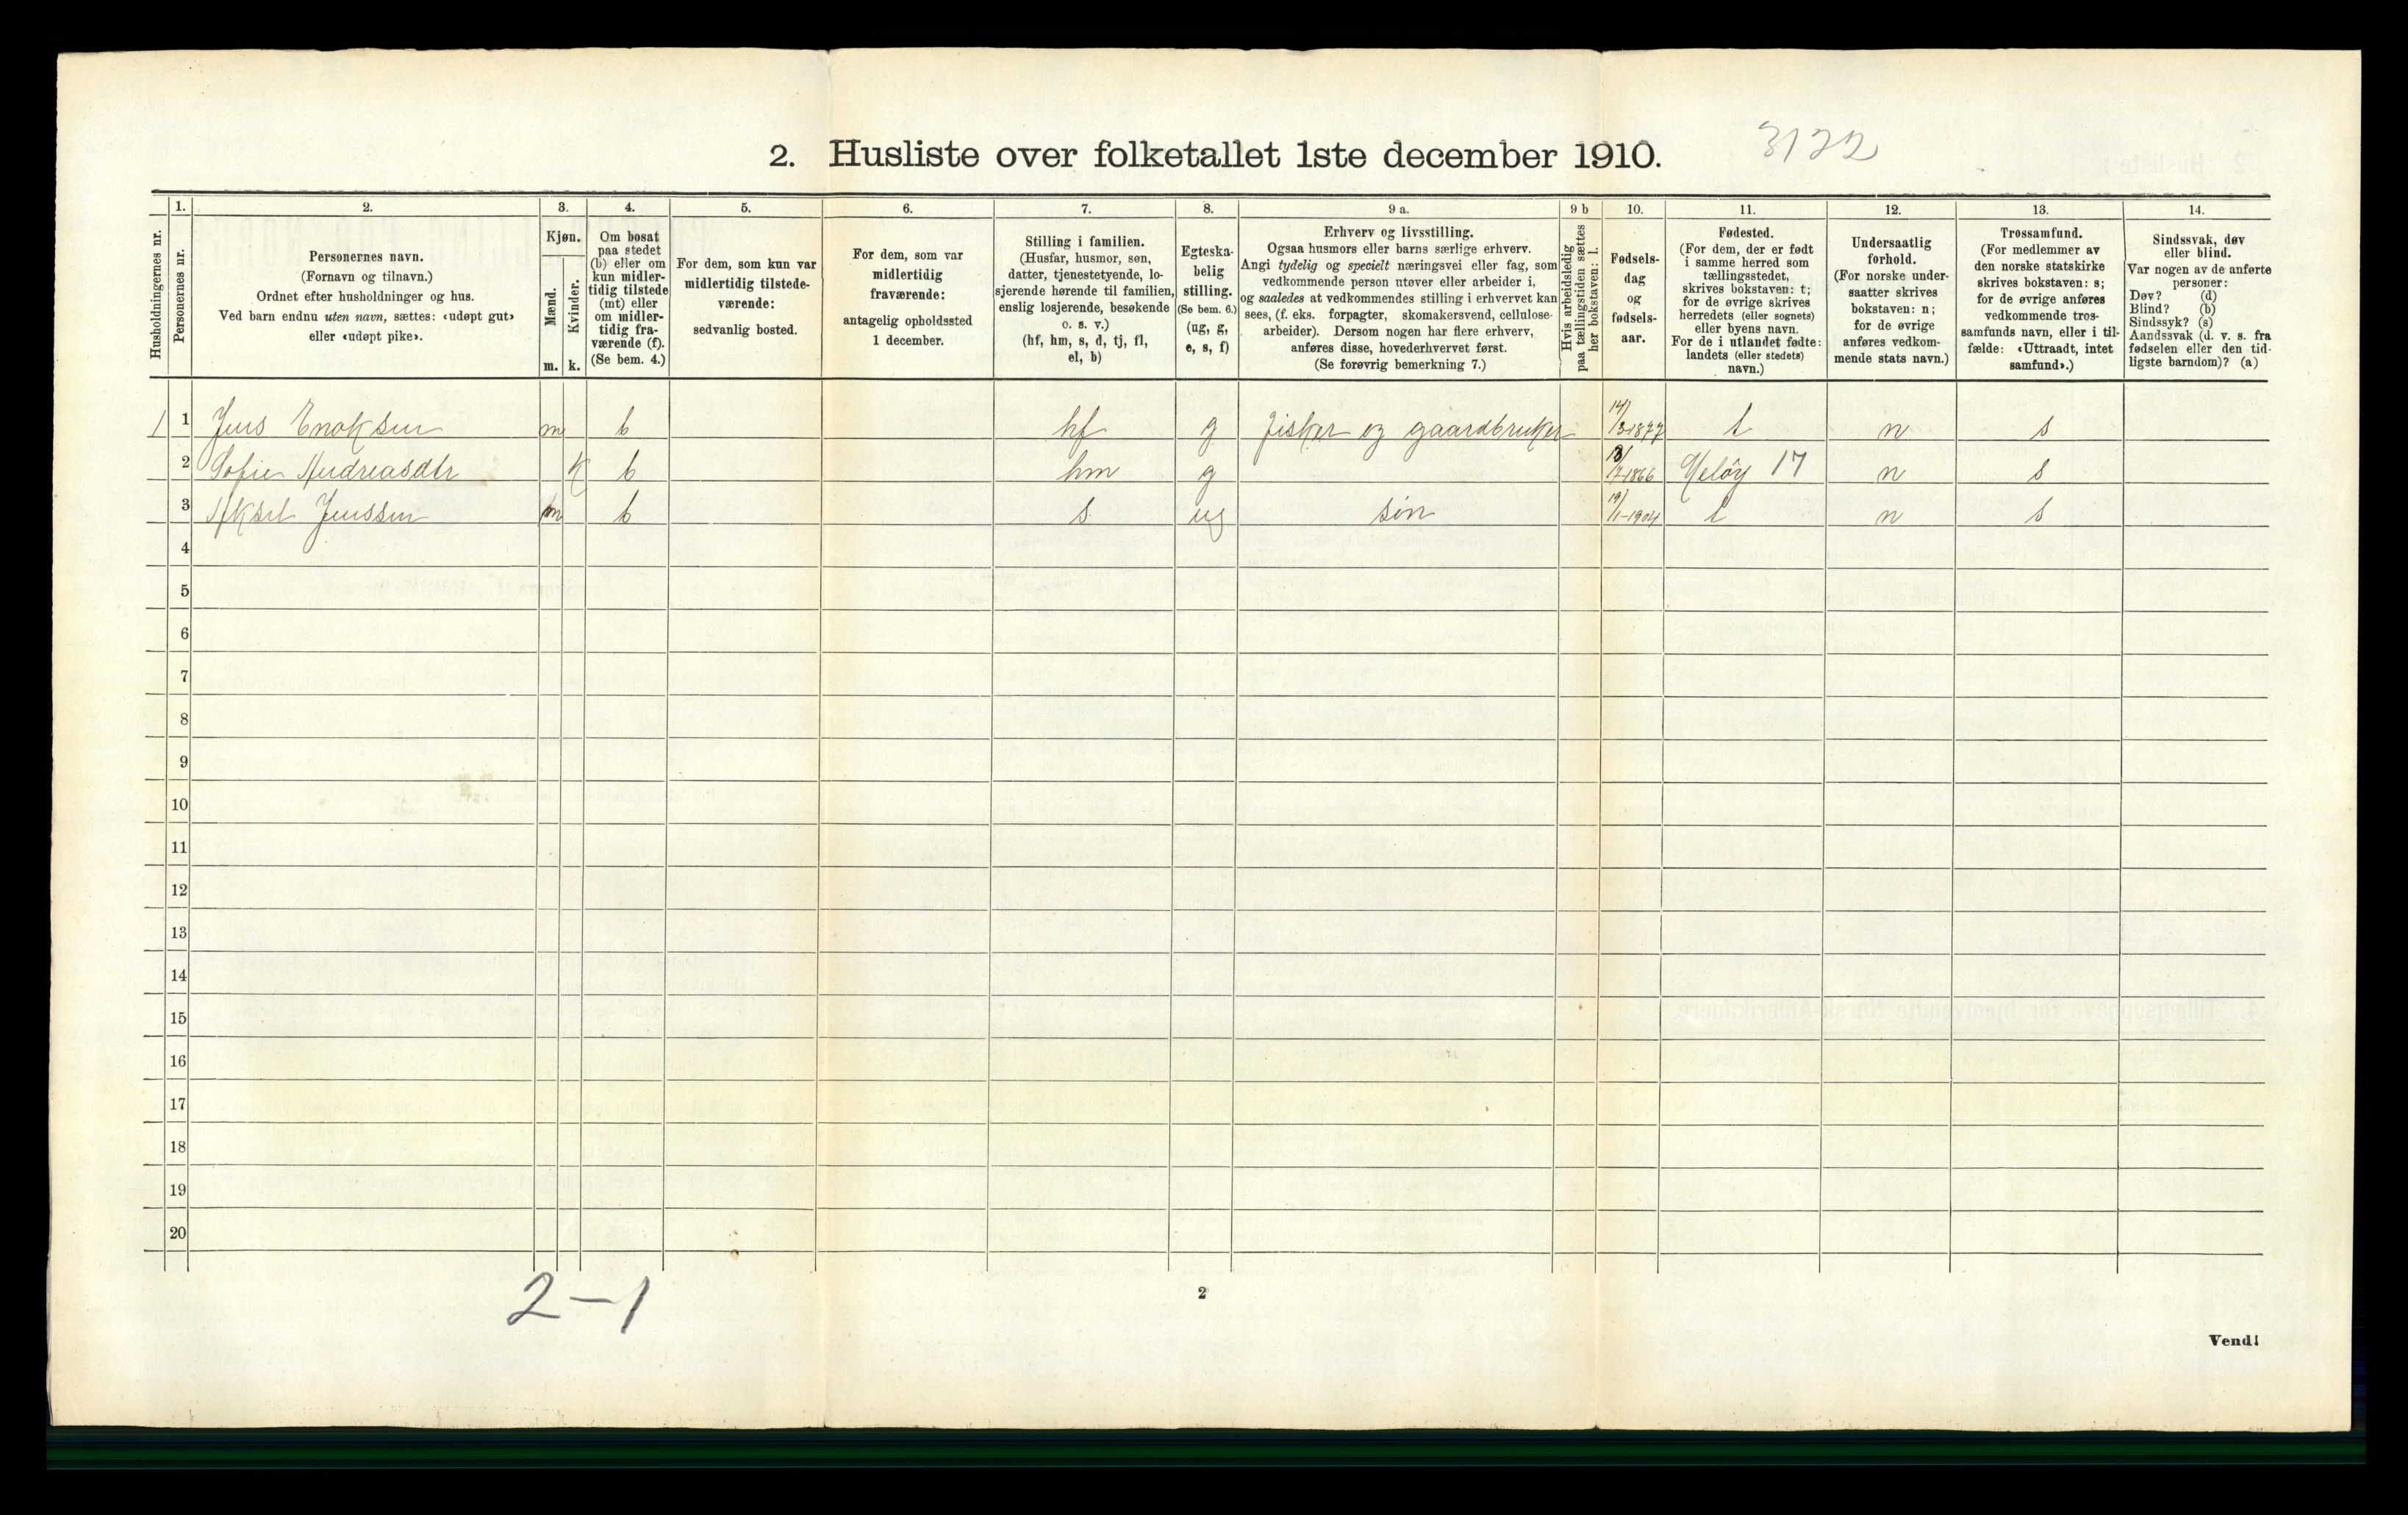 2. Husliste over folketallet 1ste december 1910.
3122
Husholdningernes nr.
1.
Personernes nr.
2.
Personernes navn.
(Fornavn og tilnavn.)
Ordnet efter husholdninger og hus.
Ved barn endnu uten navn, sættes: «udøpt gut»
eller «udøpt pike».
3.
Kjøn.
Mænd.
m.
Kvinder.
k.
4.
Om bosat
paa stedet
(b) eller om
kun midler-
tidig tilstede
(mt) eller
om midler-
tidig fra-
værende (f).
(Se bem. 4.)
5.
For dem, som kun var
midlertidig tilstede-
værende:
sedvanlig bosted.
6.
For dem, som var
midlertidig
fraværende:
antagelig opholdssted
1 december.
7.
Stilling i familien.
(Husfar, husmor, søn,
datter, tjenestetyende, lo-
sjerende hørende til familien,
enslig losjerende, besøkende
o. s. v.)
(hf, hm, s, d, tj, fl,
el, b)
8.
Egteska-
belig
stilling.
(Se bem. 6.)
(ug, g,
e, s, f)
9 a.
Erhverv og livsstilling.
Ogsaa husmors eller barns særlige erhverv.
Angi tydelig og specielt næringsvei eller fag, som
vedkommende person utøver eller arbeider i,
og saaledes at vedkommendes stilling i erhvervet kan
sees, (f. eks. forpagter, skomakersvend, cellulose-
arbeider). Dersom nogen har flere erhverv,
anføres disse, hovederhvervet først.
(Se forøvrig bemerkning 7.)
9 b
Hvis arbeidsledig
paa tællingstiden sættes
her bokstaven: l.
10.
Fødsels-
dag
og
fødsels-
aar.
11.
Fødested.
(For dem, der er født
i samme herred som
tællingsstedet,
skrives bokstaven: t;
for de øvrige skrives
herredets (eller sognets)
eller byens navn.
For de i utlandet fødte:
landets (eller stedets)
navn.)
12.
Undersaatlig
forhold.
(For norske under-
saatter skrives
bokstaven: n;
for de øvrige
anføres vedkom-
mende stats navn.)
13.
Trossamfund.
(For medlemmer av
den norske statskirke
skrives bokstaven: s;
for de øvrige anføres
vedkommende tros-
samfunds navn, eller i til-
fælde: «Uttraadt, intet
samfund».)
14.
Sindssvak, døv
eller blind.
Var nogen av de anførte
personer:
Døv? (d)
Blind? (b)
Sindssyk? (s)
Aandssvak (d. v. s. fra
fødselen eller den tid-
ligste barndom)? (a)
1 1 Jens Enoksen m b hf g fisker og gaardbruker 14/3-1877 t n s
2 Sofie Andreasdtr k b hm g /7-1866 Meløy 17 n s
3 Aksel Jenssen m b s ug søn 19/1-1904 t n s
4
5
6
7
8
9
10
11
12
13
14
15
16
17
18
19
20
2-1
2
Vend!